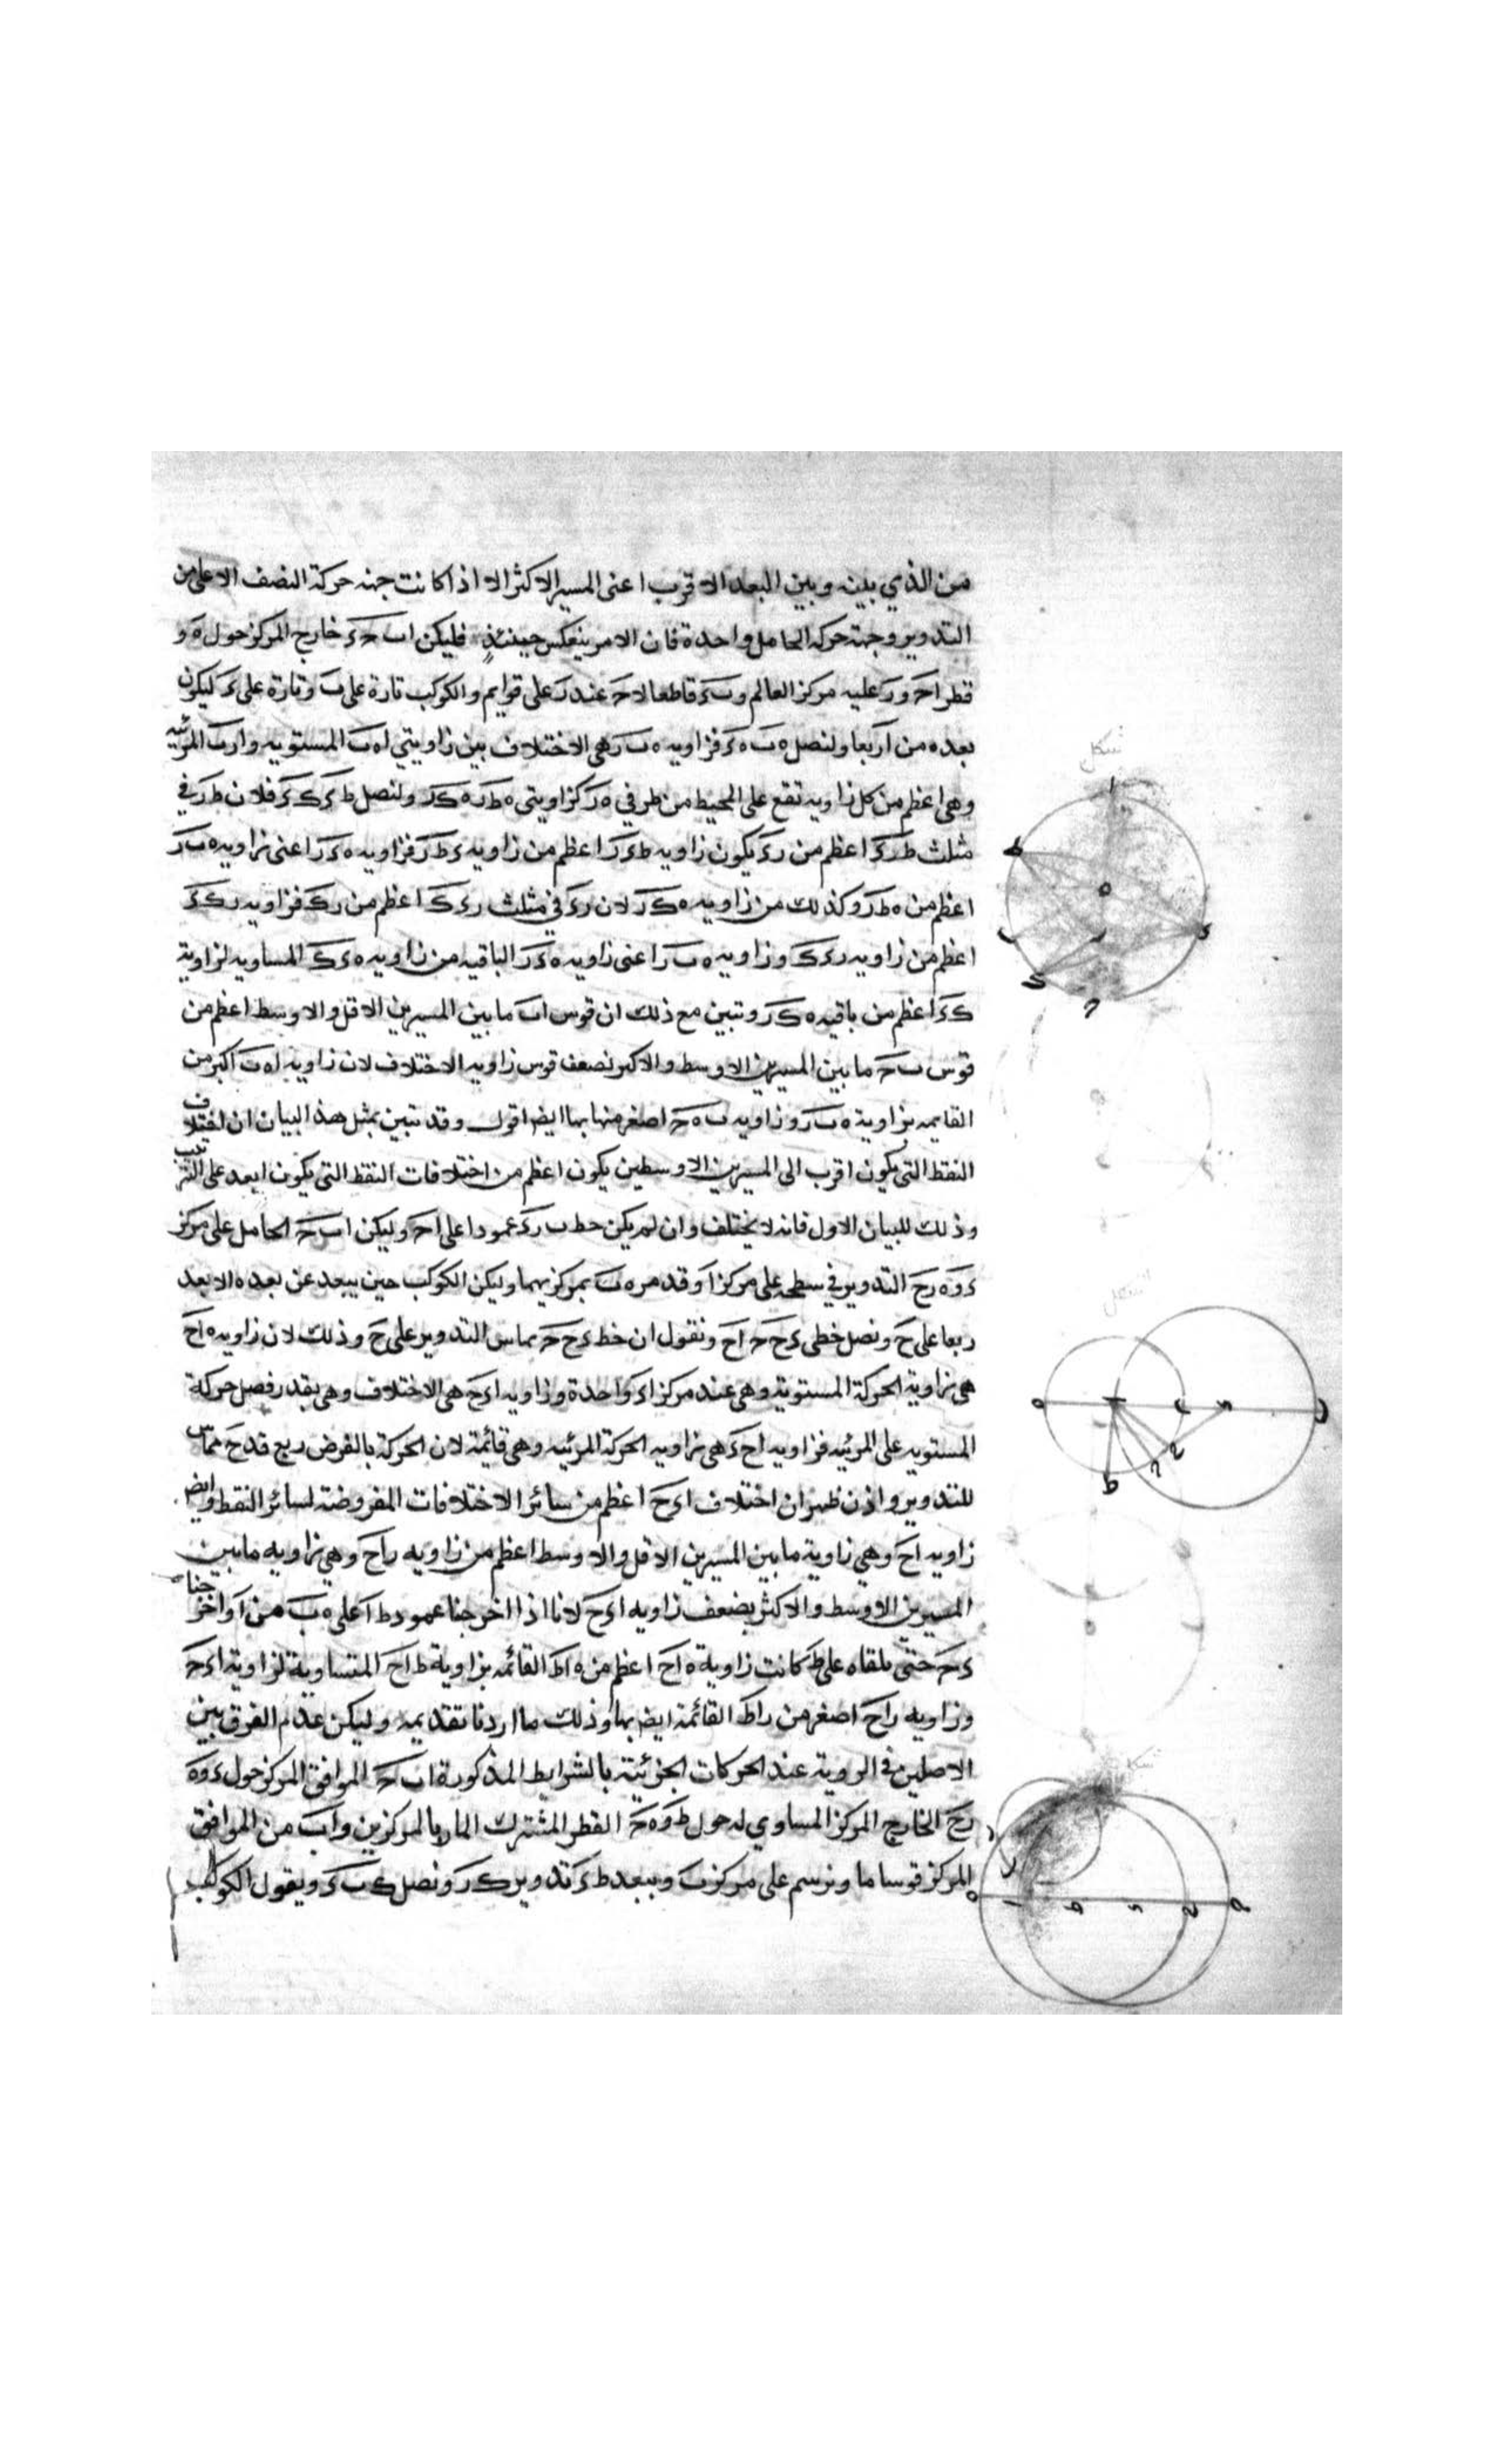 من الذي بينه وبين البعد الاقرب اعنى المسير الاكثر الا اذا كانت جهة حركة النصف الاعلى من
التدوير وجهة حركة الحامل واحدة فان الامر ينعكس حينئذٍ فليكن اب حء خارج المركز حول ه و
قطر احـ و ر عليه مركز العالم و بء قاطعا لاحـ عند ر على قوايم والكوكب تارة على ب وتارة على ء ليكون
بعده من ا ربعا ولنصل ه ب ه ء فزاويه ه ب ر هى الاختلاف بين زاويتي ا ه ب المستويه و ا ر ب المرئيه
وهى اعظم من كل زاويه تقع على المحيط من طرفي ه ر كزاويتى ه ط ر ه ك ر ولنصل ط ء ك ء فلان ط ر في
مثلث ط ر ء اعظم من ر ء يكون زاويه ط ء ر اعظم من زاويه ء ط ر فزاويه ه ء ر اعنى زاويه ه ب ر
اعظم من ه ط ر وكذلك من زاويه ه ك ر لان ر ء في مثلث ر ء ك اعظم من ر ك فزاويه ر ك ء
اعظم من زاويه ر ء ك وزاويه ه ب ر اعنى زاويه ه ء ر الباقيه من زاويه ه ء ك المساويه لزاوية
ه ك ء اعظم من باقيه ه ك ر وتبين مع ذلك ان قوس اب ما بين المسيرين الاقل والاوسط اعظم من
قوس ب حـ ما بين المسيرين الاوسط والاكبر بضعف قوس زاويه الاختلاف لان زاويه ا ه ب اكبر من
القايمه بزاوية ه ب ر وزاويه ب ه حـ اصغر منها بها ايضا اقول وقد تبين بمثل هذا البيان ان اختلاف
النقط التى يكون اقرب الى المسيرين الاوسطين يكون اعظم من اختلافات النقط التى يكون ابعد على الترتيب
وذلك للبيان الاول فانه لا يختلف وان لم يكن خط ب ر ء عمودا على احـ وليكن اب حـ الحامل على مركز
ء و ه ر ح التدوير في سطحه على مركز ا وقد مر ه ب بمركزيهما وليكن الكوكب حين يبعد عن بعده الابعد
ربعا على ح ونصل خطى ء ح حـ ا ح ونقول ان خط ء ح حـ يماس التدوير على ح وذلك لان زاويه ه ا ح
هى زاوية الحركة المستوية وهى عند مركز ا ء واحدة وزاويه ا ء ح هى الاختلاف وهى بقدر فصل حركة
المستويه على المرئيه فزاويه ا ح ء هى زاويه الحركة المرئيه وهى قائمة لان الحركة بالفرض ربع ف ء ح مماس
للتدوير واذن ظهر ان اختلاف ا ء ح اعظم من سائر الاختلافات المفروضة لسائر النقط وايضا
زاويه ه ا ح وهى زاوية ما بين المسيرين الاقل والاوسط اعظم من زاويه ر ا ح وهى زاويه ما بين
المسيرين الاوسط والاكثر بضعف زاويه ا ء ح لانا اذا اخرجنا عمود ط ا على ه ب من ا واخرجنا
ء حـ حتى يلقاه على ط كانت زاوية ه ا ح اعظم من ه ا ط القائمه بزاوية ط ا ح المتساوية لزاوية ا ء ح
وزاويه ر ا ح اصغر من ر ا ط القائمة ايضا بها وذلك ما اردنا تقديمه وليكن عدم الفرق بين
الاصلين في الرويه عند الحركات الجزئية بالشرايط المذكورة اب حـ الموافق المركز حول ء و ه
ر ح الخارج المركز المساوي له حول ط و ه حـ القطر المشترك المار بالمركزين و اب من الموافق
المركز قوسا ما ونرسم على مركز ب وببعد ط ء تدوير ك ر ونصل ك ب ء ويقول الكوكب
شكل
شكل
شكل